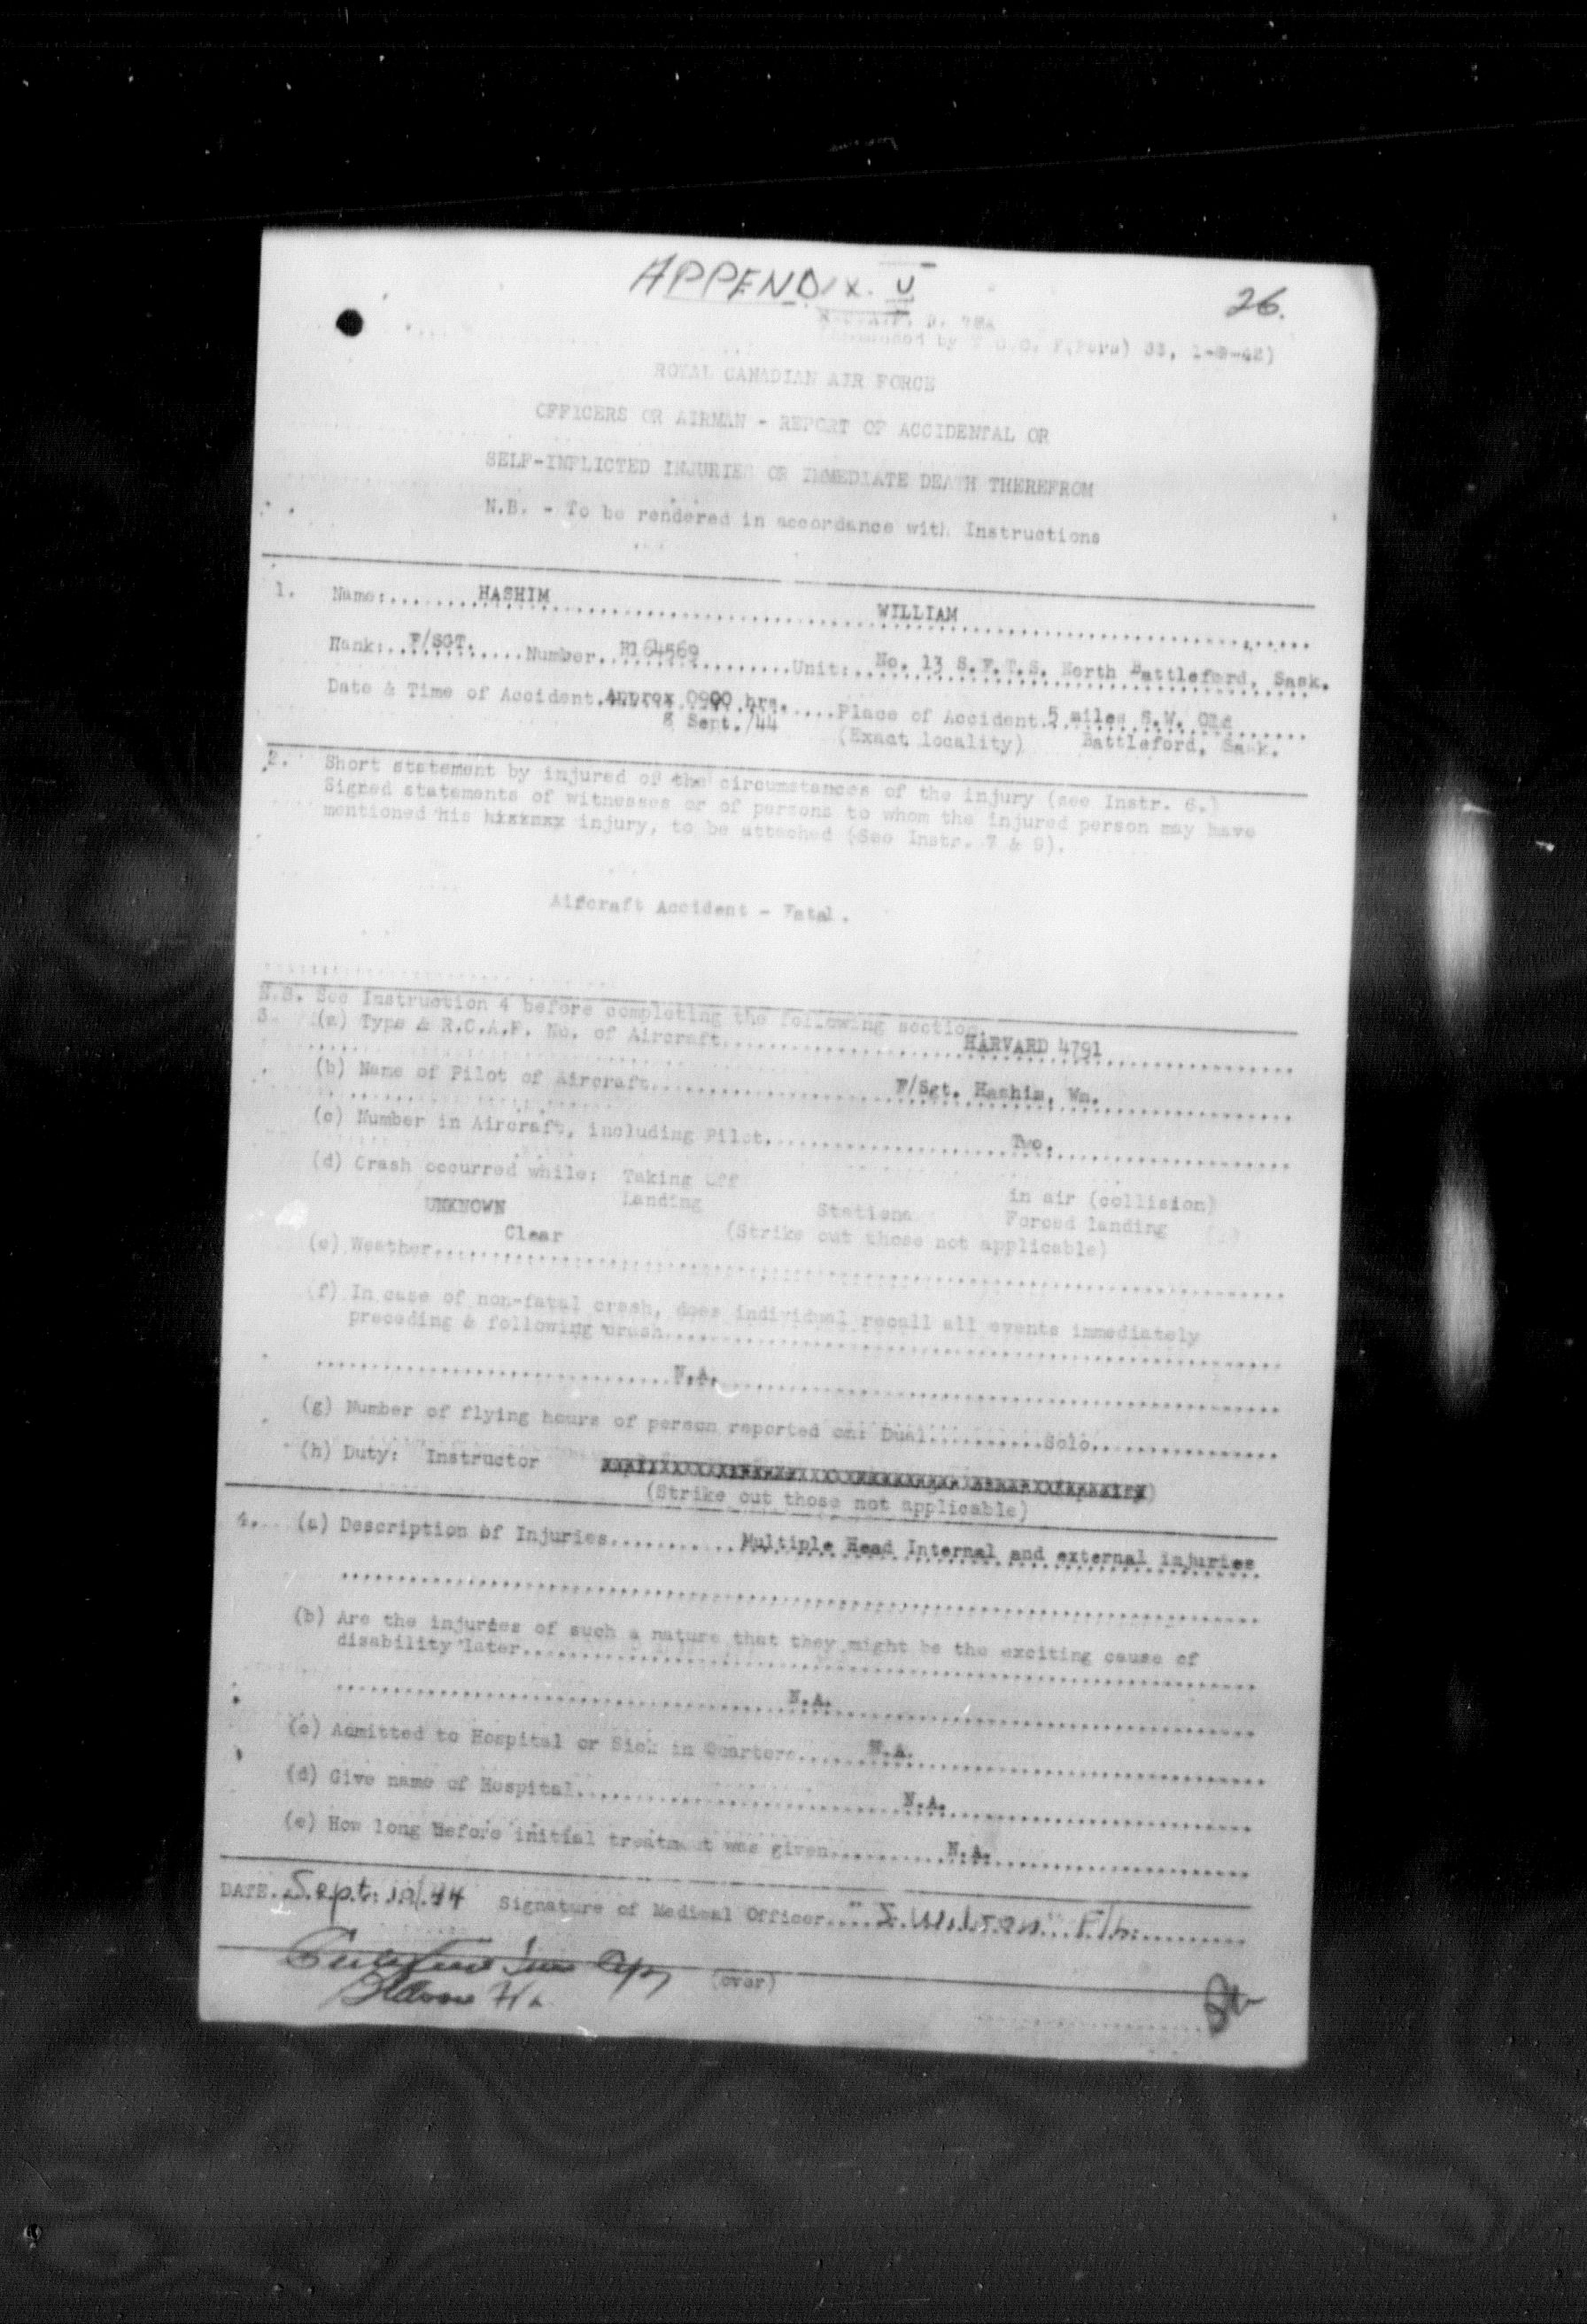 APPENDIX U
26.
33, 1-9-42)
ROYAL CANADIAN AIR FORCE
OFFICERS OR AIRMAN - REPORT OF ACCIDENTAL OR
SELF-INFLICTED INJURIES OR IMMEDIATE DEATH THEREFROM
N.B. - To be rendered in accordance with Instructions
1. Name:.......HASHIM..............................WILLIAM..............................
Rank:..F/SGT.....Number..R164569........Unit:..No. 13 S.F.T.S. North Battleford, Sask.
Date & Time of Accident.Approx 0900 hrs.....Place of Accident.5 miles S.W. Old
8 Sept./44 (Exact locality) Battleford, Sask.
2. Short statement by injured of the circumstances of the injury (see Instr. 6.)
Signed statements of witnesses or of persons to whom the injured person may have
mentioned his injury, to be attached (See Instr. 7 & 9).
Aircraft Accident - Fatal.
N.B. See Instruction 4 before completing the following section.
3. (a) Type & R.C.A.F. No. of Aircraft....................HARVARD 4791....................
(b) Name of Pilot of Aircraft....................F/Sgt. Hashim, Wm.....................
(c) Number in Aircraft, including Pilot....................Two.....................
(d) Crash occurred while: Taking Off in air (collision)
Landing Forced landing
UNKNOWN (Strike out those not applicable)
(e) Weather......Clear..............................
(f) In case of non-fatal crash, does individual recall all events immediately
preceding & following crash..............................
..............................N.A...............................
(g) Number of flying hours of person reported on: Dual..........Solo................
(h) Duty: Instructor
(Strike out those not applicable)
4. (a) Description of Injuries...........Multiple Head Internal and external injuries
(b) Are the injuries of such a nature that they might be the exciting cause of
disability later..............................
..............................N.A...............................
(c) Admitted to Hospital or Sick in Quarters......N.A...............................
(d) Give name of Hospital..............................N.A...............................
(e) How long before initial treatment was given..........N.A...............................
DATE..Sept. 10/44 Signature of Medical Officer...."S. Wilson" F/L..........
(over)